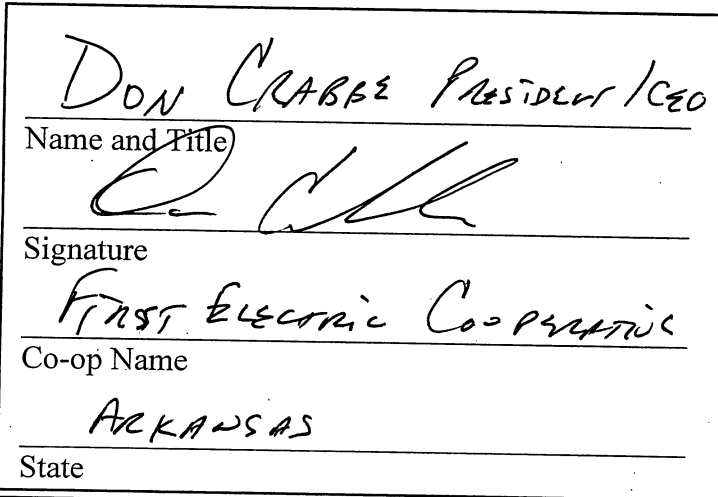 Don Crabbe President/CEO
Name and Title
Signature
First Electric Cooperative
Co-op Name
Arkansas
State